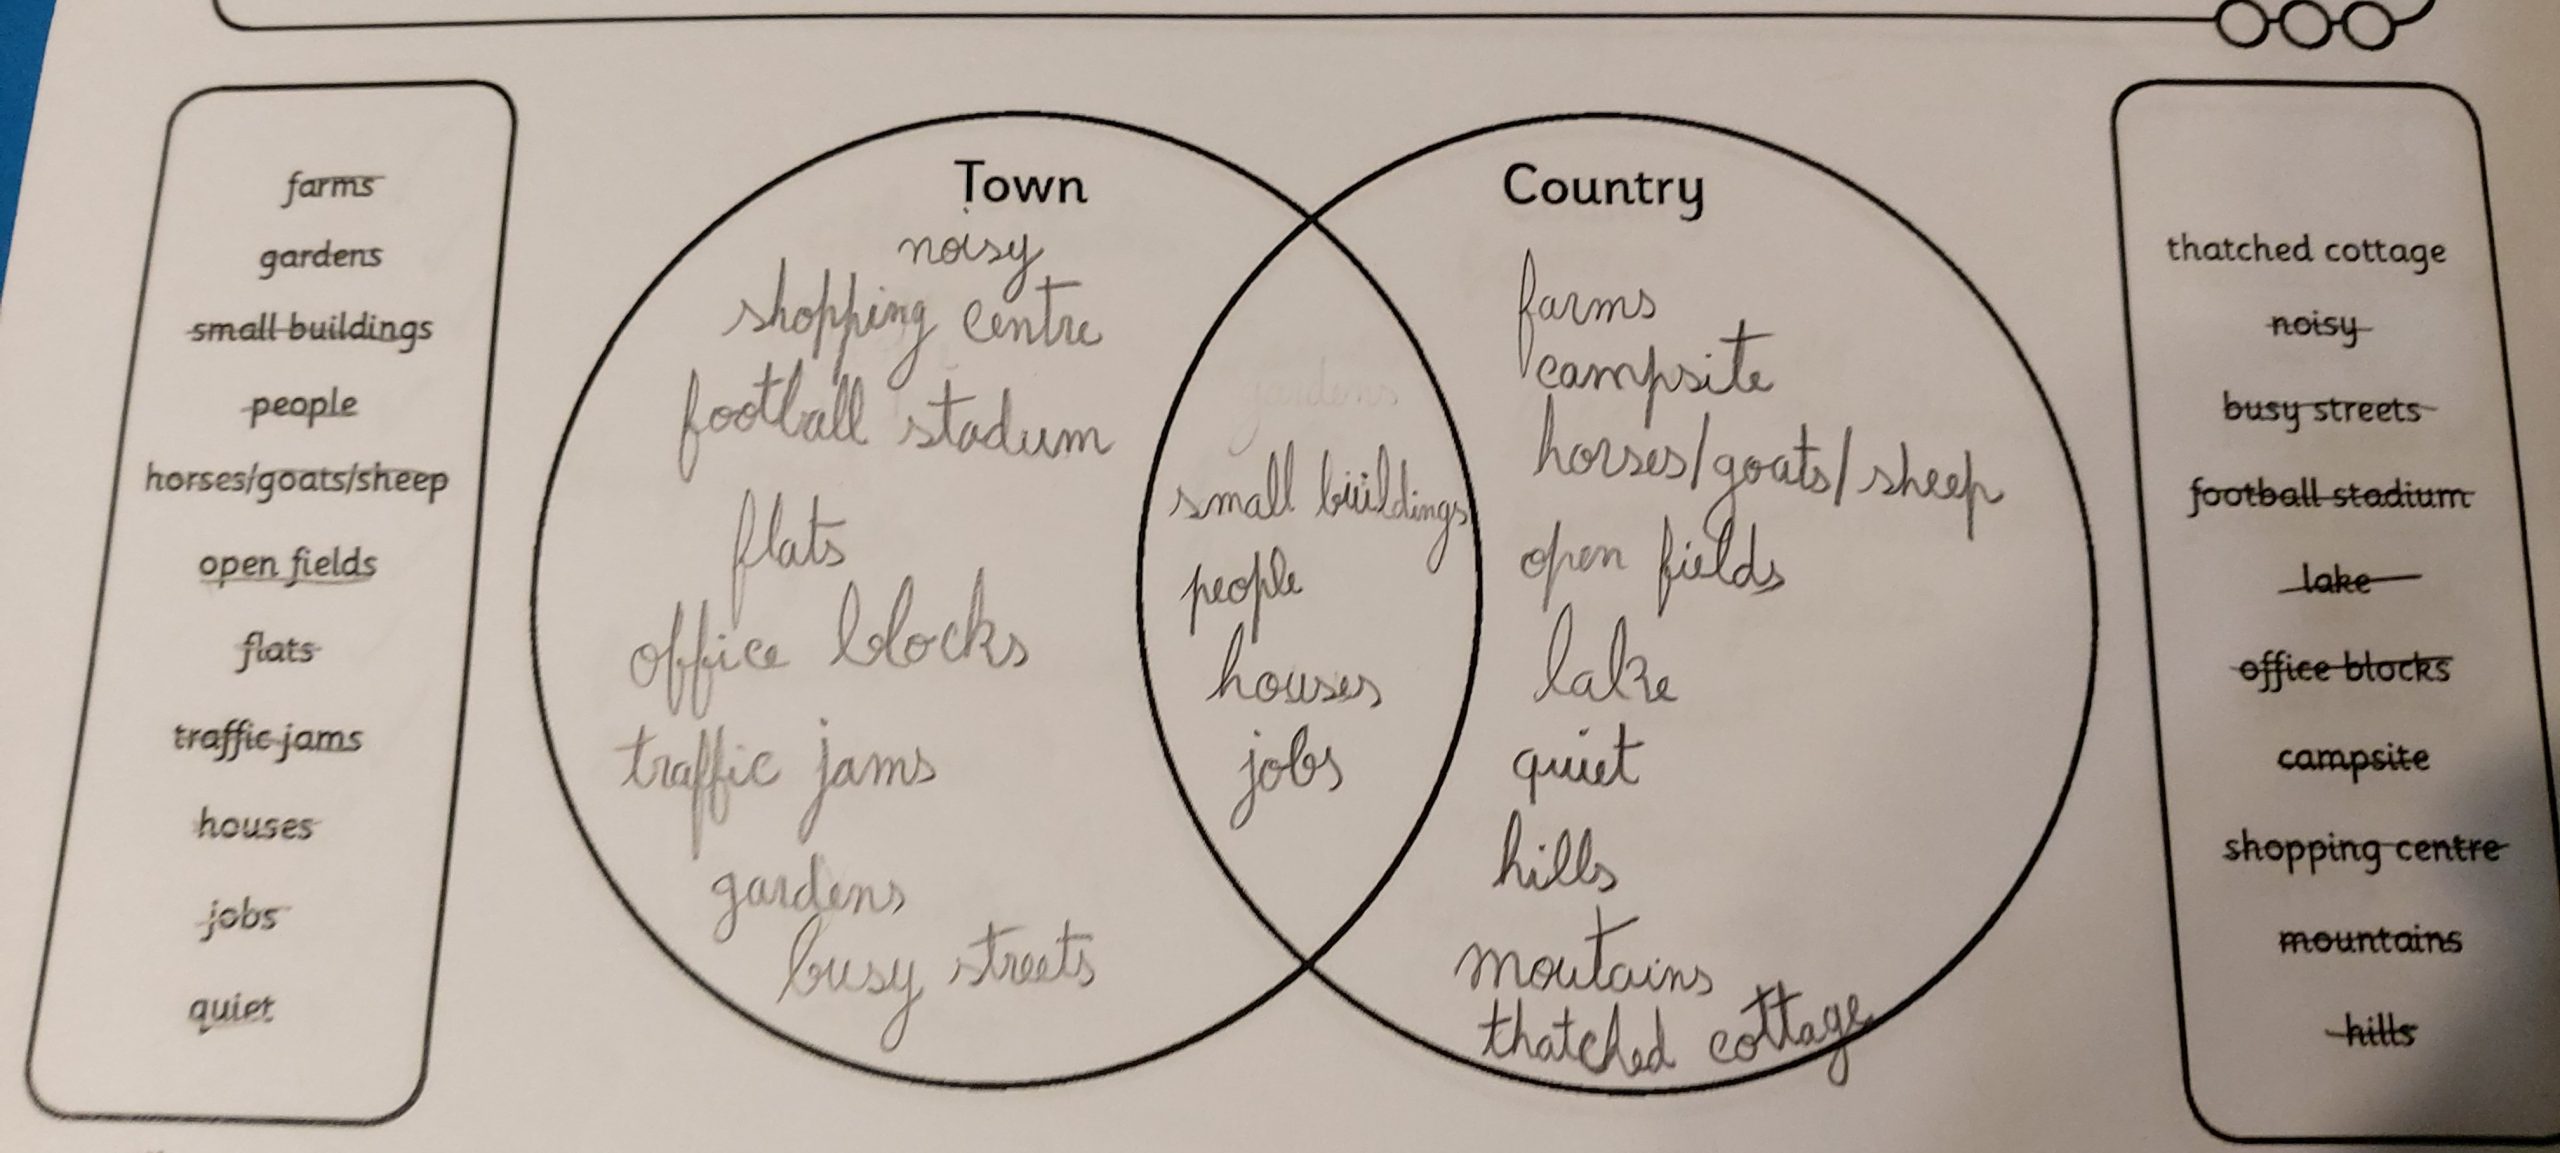 farms
gardens
small buildings
people
horses/goats/sheep
open fields
flats
traffic jams
houses
jobs
quiet
Town
noisy
shopping centre
football stadum
flats
office blocks
traffic jams
gardens
busy streets
gardens
small buildings
people
houses
jobs
Country
farms
campsite
horses/goats/sheep
open fields
lake
quiet
hills
moutains
thatched cottage
thatched cottage
noisy
busy streets
football stadium
lake
office blocks
campsite
shopping centre
mountains
hills